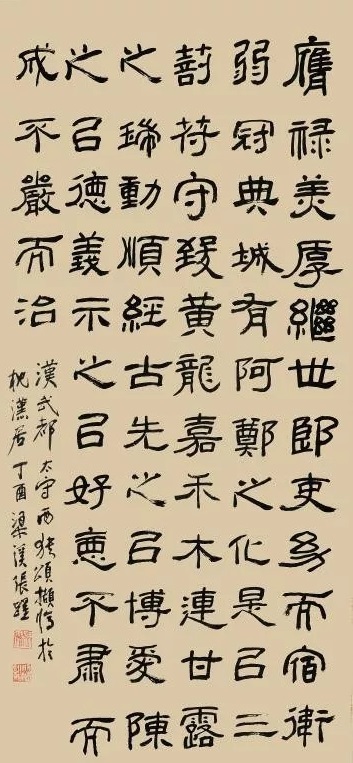 膺祿美厚繼世郎吏幼而宿衛
弱冠典城有阿鄭之化是㠯三
剖符守致黃龍嘉禾木連甘露
之瑞動順經古先之㠯博愛陳
之㠯德義示之㠯好惡不肅而
成不嚴而治
漢武都太守西狹頌於
居丁酉梁溪張